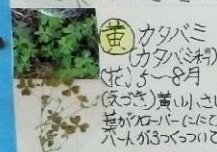 黄 カタバミ
(カタバミ科)
(花) 5〜8月
(気づき) 黄い小さい
葉がクローバーににて
ハートが3つくっついて